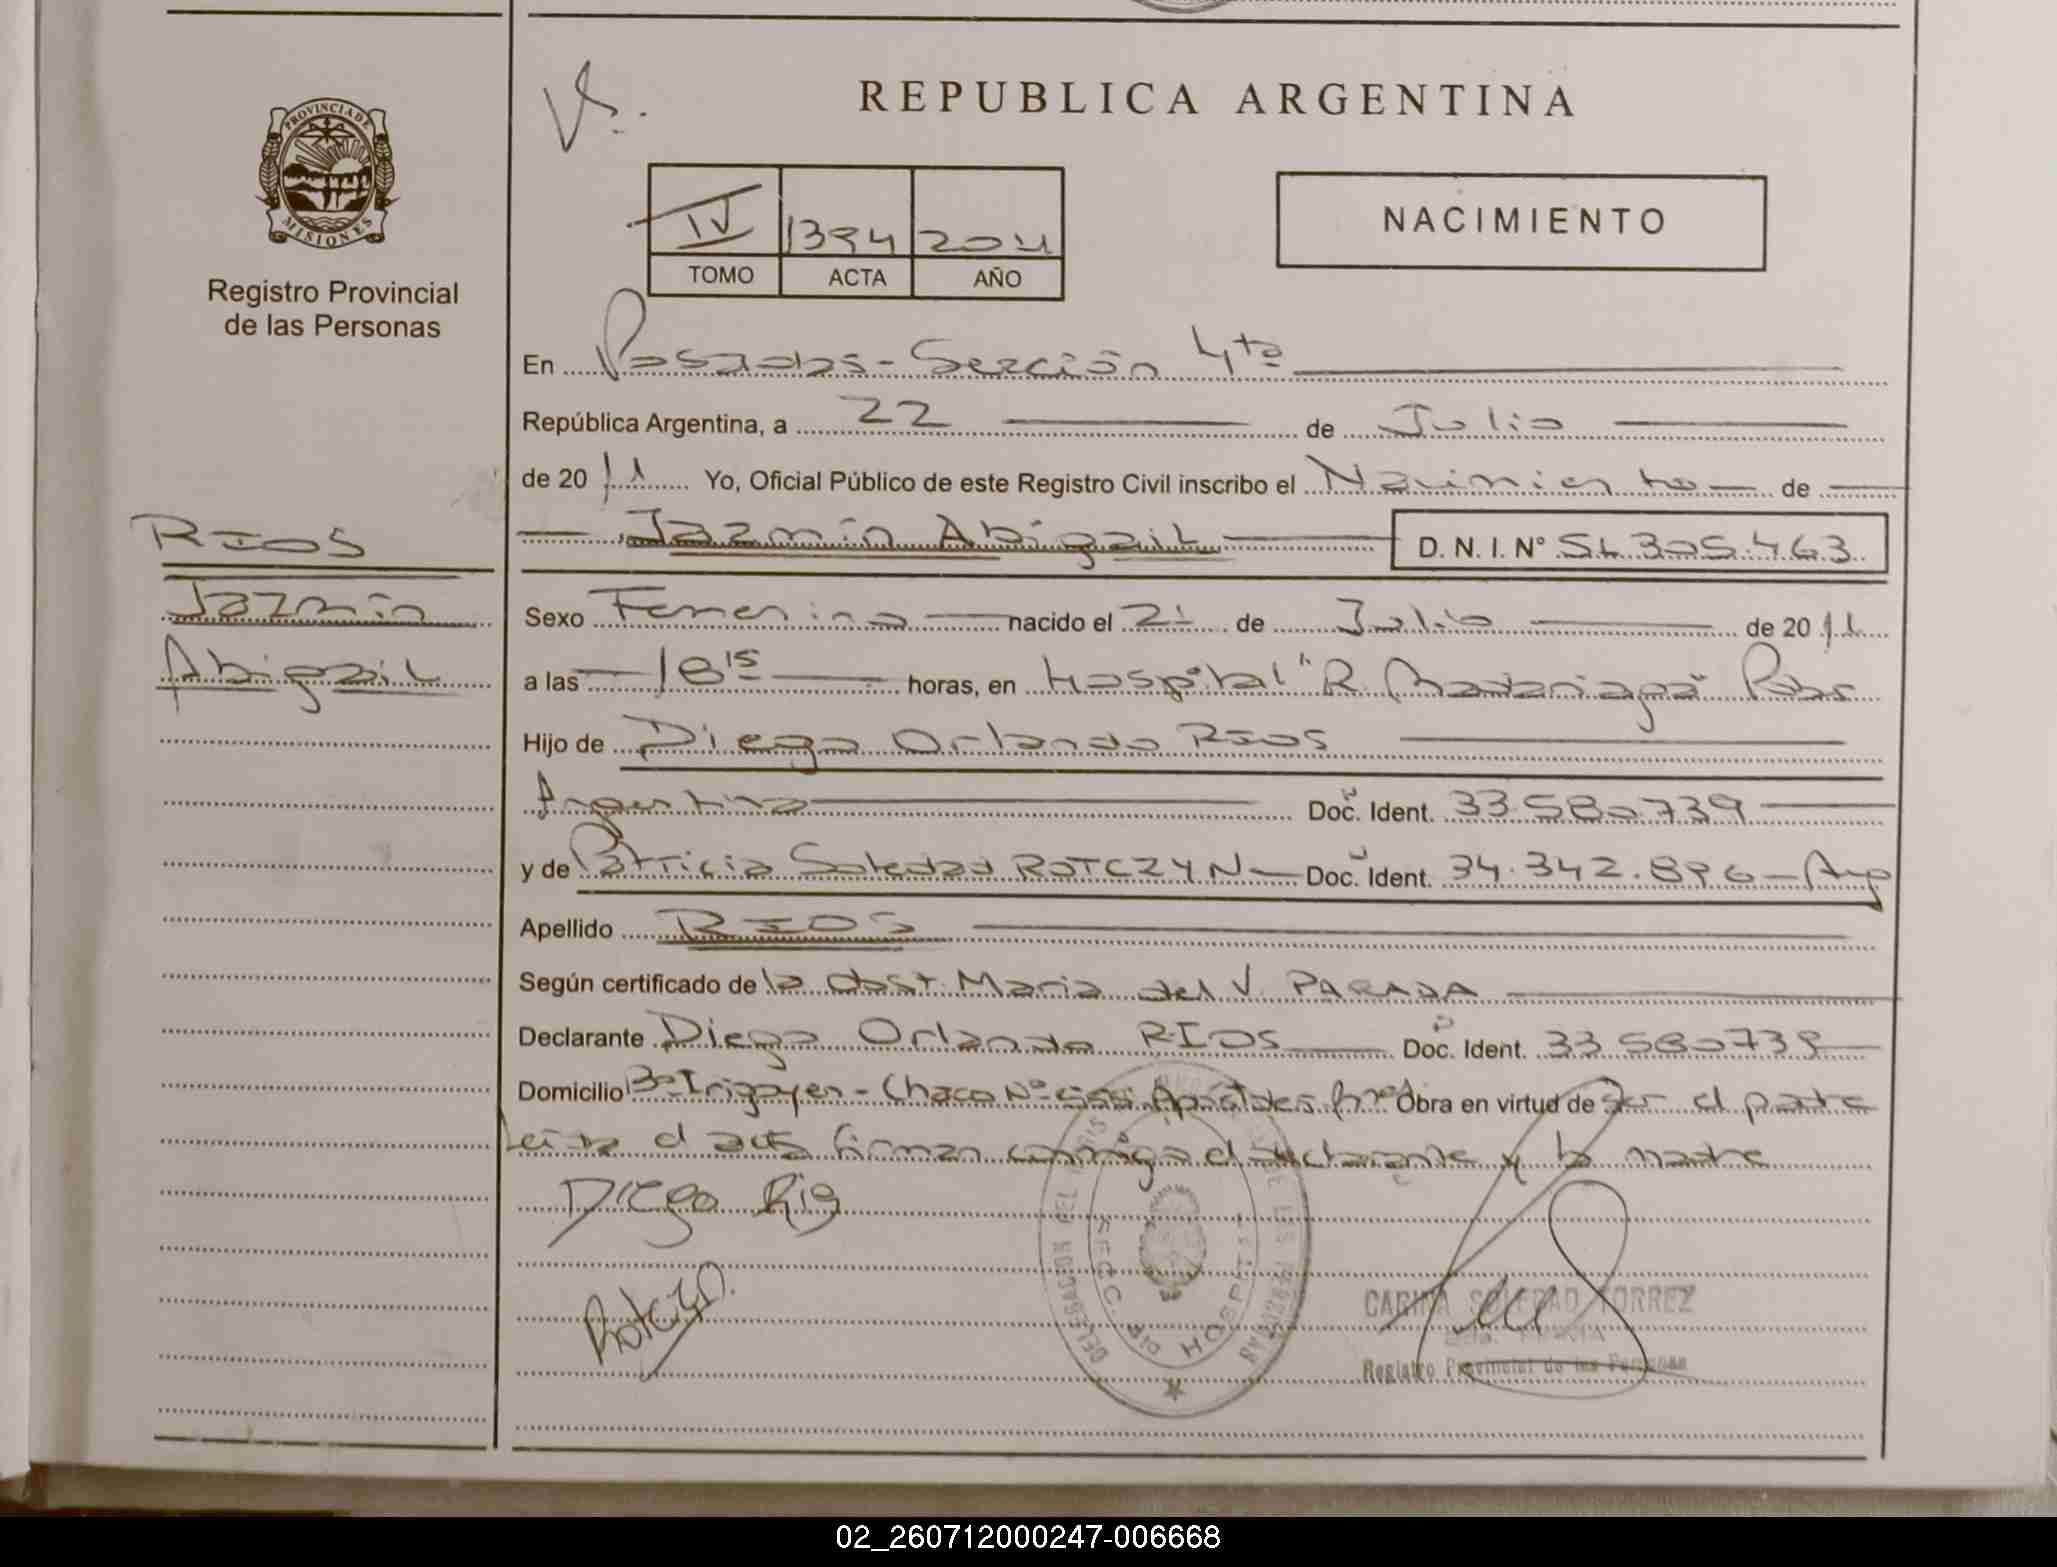 REPUBLICA ARGENTINA
PROVINCIA DE MISIONES
Registro Provincial
de las Personas
IV 1394 2011
TOMO ACTA AÑO
NACIMIENTO
En Posadas - Sección 4ta
República Argentina, a 22 de Julio
de 2011 Yo, Oficial Público de este Registro Civil inscribo el Nacimiento de
RIOS
Jazmín Abigail D. N. I. Nº 51.305.463
Jazmín
Sexo Femenino nacido el 21 de Julio de 2011
Abigail
a las 18 15 horas, en Hospital "R. Madariaga" Pdas
Hijo de Diego Orlando RIOS
Argentina Doc. Ident. 33.580.739
y de Patricia Soledad ROTCZYN Doc. Ident. 34.342.896 - Arg
Apellido RIOS
Según certificado de la Obst. Maria del V. PARADA
Declarante Diego Orlando RIOS Doc. Ident. 33.580.739
Domicilio Bº Irigoyen - Chaco Nº 555 Apóstoles Mnes Obra en virtud de ser el padre
Leída el acta firman conmigo el declarante y la madre
Diego Rios
CARINA SOLEDAD TORREZ
Registro Provincial de las Personas
DELEGACION DEL REGISTRO PROVINCIAL DE LAS PERSONAS
SECC. HOSPITAL
02_260712000247-006668